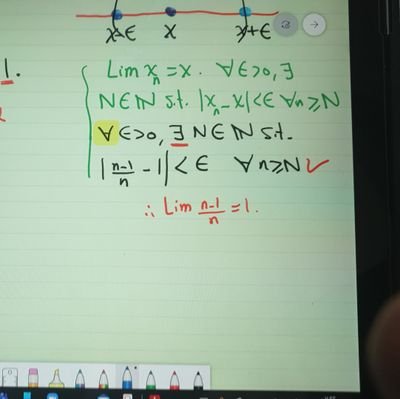 x-ε x x+ε
1.
Lim xₙ = x. ∀ε>0, ∃
N∈ℕ s.t. |xₙ-x|<ε ∀n≥N
∀ε>0, ∃N∈ℕ s.t.
|n-1/n - 1| < ε ∀n≥N ✓
∴ Lim n-1/n = 1.